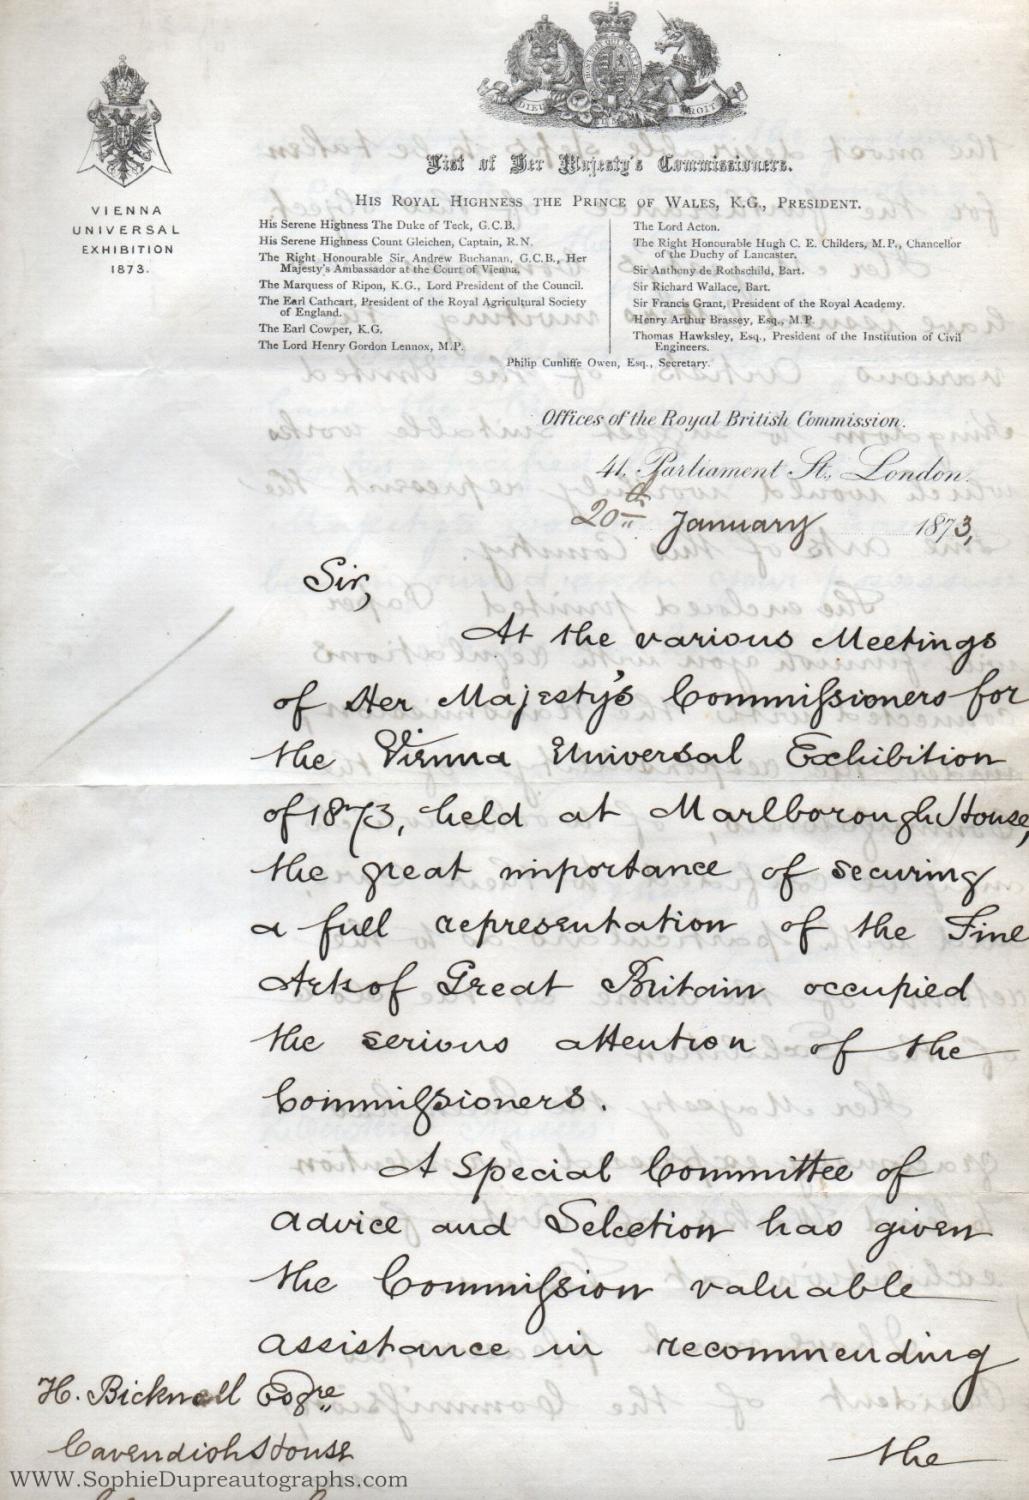 VIENNA
UNIVERSAL
EXHIBITION
1873.
DIEU DROIT
List of Her Majesty's Commissioners.
HIS ROYAL HIGHNESS THE PRINCE OF WALES, K.G., PRESIDENT.
His Serene Highness The Duke of Teck, G.C.B.
His Serene Highness Count Gleichen, Captain, R.N.
The Right Honourable Sir Andrew Buchanan, G.C.B., Her
Majesty's Ambassador at the Court of Vienna.
The Marquess of Ripon, K.G., Lord President of the Council.
The Earl Cathcart, President of the Royal Agricultural Society
of England.
The Earl Cowper, K.G.
The Lord Henry Gordon Lennox, M.P.
The Lord Acton.
The Right Honourable Hugh C. E. Childers, M.P., Chancellor
of the Duchy of Lancaster.
Sir Anthony de Rothschild, Bart.
Sir Richard Wallace, Bart.
Sir Francis Grant, President of the Royal Academy.
Henry Arthur Brassey, Esq., M.P.
Thomas Hawksley, Esq., President of the Institution of Civil
Engineers.
Philip Cunliffe Owen, Esq., Secretary.
Offices of the Royal British Commission.
41, Parliament St., London.
20th January 1873,
Sir,
At the various Meetings
of Her Majesty's Commiſsioners for
the Vienna Universal Exhibition
of 1873, held at Marlborough House,
the great importance of securing
a full representation of the Fine
Arts of Great Britain occupied
the serious attention of the
Commiſsioners.
A Special Committee of
advice and Selection has given
the Commiſsion valuable
assistance in recommending
H. Bicknell Esqre
Cavendish House
the
WWW.SophieDupreautographs.com